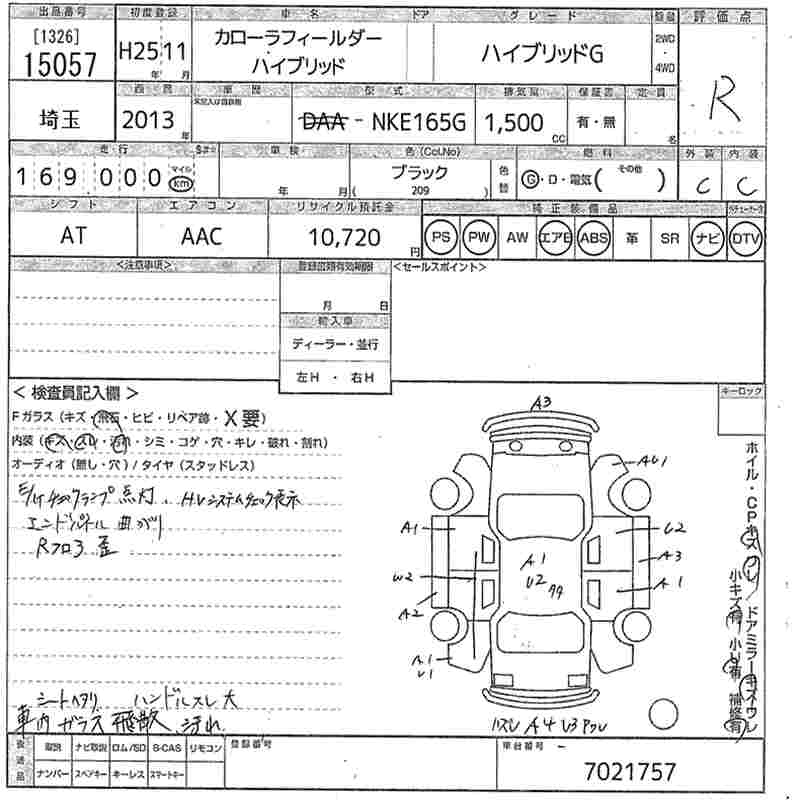 出品番号 初度登録 車名 ドア グレード 駆動 評価点
[1326]
15057
H25 11
年 月
カローラフィールダー
ハイブリッド
ハイブリッドG
2WD
・
4WD
R
西暦 車歴 型式 排気量 保証書 定員
埼玉
2013 年
DAA - NKE165G
1,500 CC
有・無
名
走行 車検 色(Col.No) 燃料 外装 内装
169000
マイル
km
年 月
ブラック
( 209 )
色替
G・D・電気( その他 )
C C
シフト エアコン リサイクル預託金 純正装備品
AT AAC 10,720 円
PS PW AW エアB ABS 革 SR ナビ DTV
<注意事項> 登録書類有効期限 <セールスポイント>
月 日
輸入車
ディーラー・並行
左H ・ 右H
< 検査員記入欄 > キーロック
Fガラス (キズ・飛石・ヒビ・リペア跡・X要)
内装 (キズ・スレ・汚れ・シミ・コゲ・穴・キレ・破れ・割れ)
オーディオ (無し・穴) / タイヤ (スタッドレス)
点灯、HVシステムチェック表示
エンドパネル 曲がり
Rフロア 歪
シートヘタリ ハンドルスレ大
車内ガラス飛散、汚れ
A3
AU1
A1
U2
A3
A1
A1
U2
W2
A2
A1
U1
A4 U3
ホイル・CPキズ ワレ/ドアミラーキズワレ
小キズ有 小U有 補修有
後送品
取説 ナビ取説 ロム/SD B-CAS リモコン
ナンバー スペアキー キーレス スマートキー
登録番号
車台番号
7021757